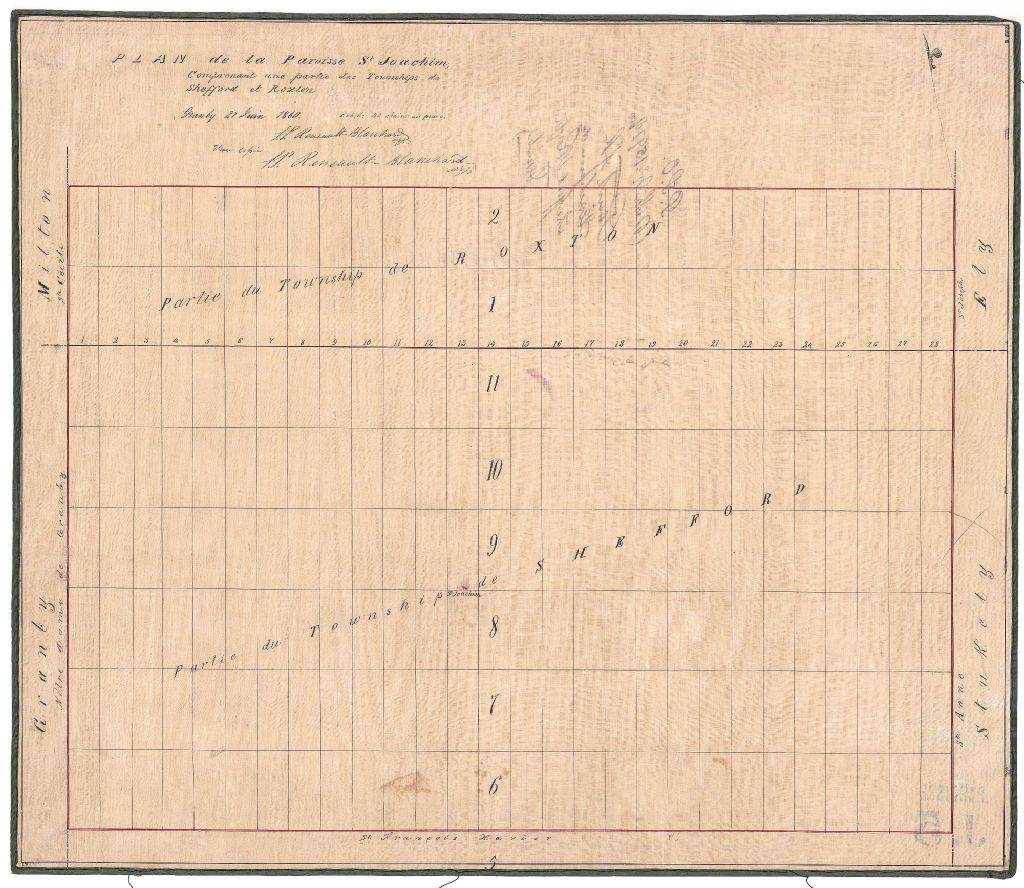 PLAN de la Paroisse St Joachim,
Comprenant une partie des Townships de
Shefford et Roxton
Granby 27 Juin 1860.
Vraie Copie
Milton
Ste Cécile
Partie du Township de ROXTON
2
1
St Joseph
Ely
1 2 3 4 5 6 7 8 9 10 11 12 13 14 15 16 17 18 19 20 21 22 23 24 25 26 27 28
11
10
9
8
7
6
Partie du Township de SHEFFORD
St Joachim
Granby
Nôtre Dame de Granby
Ste Anne
Stukely
St François Xavier
5